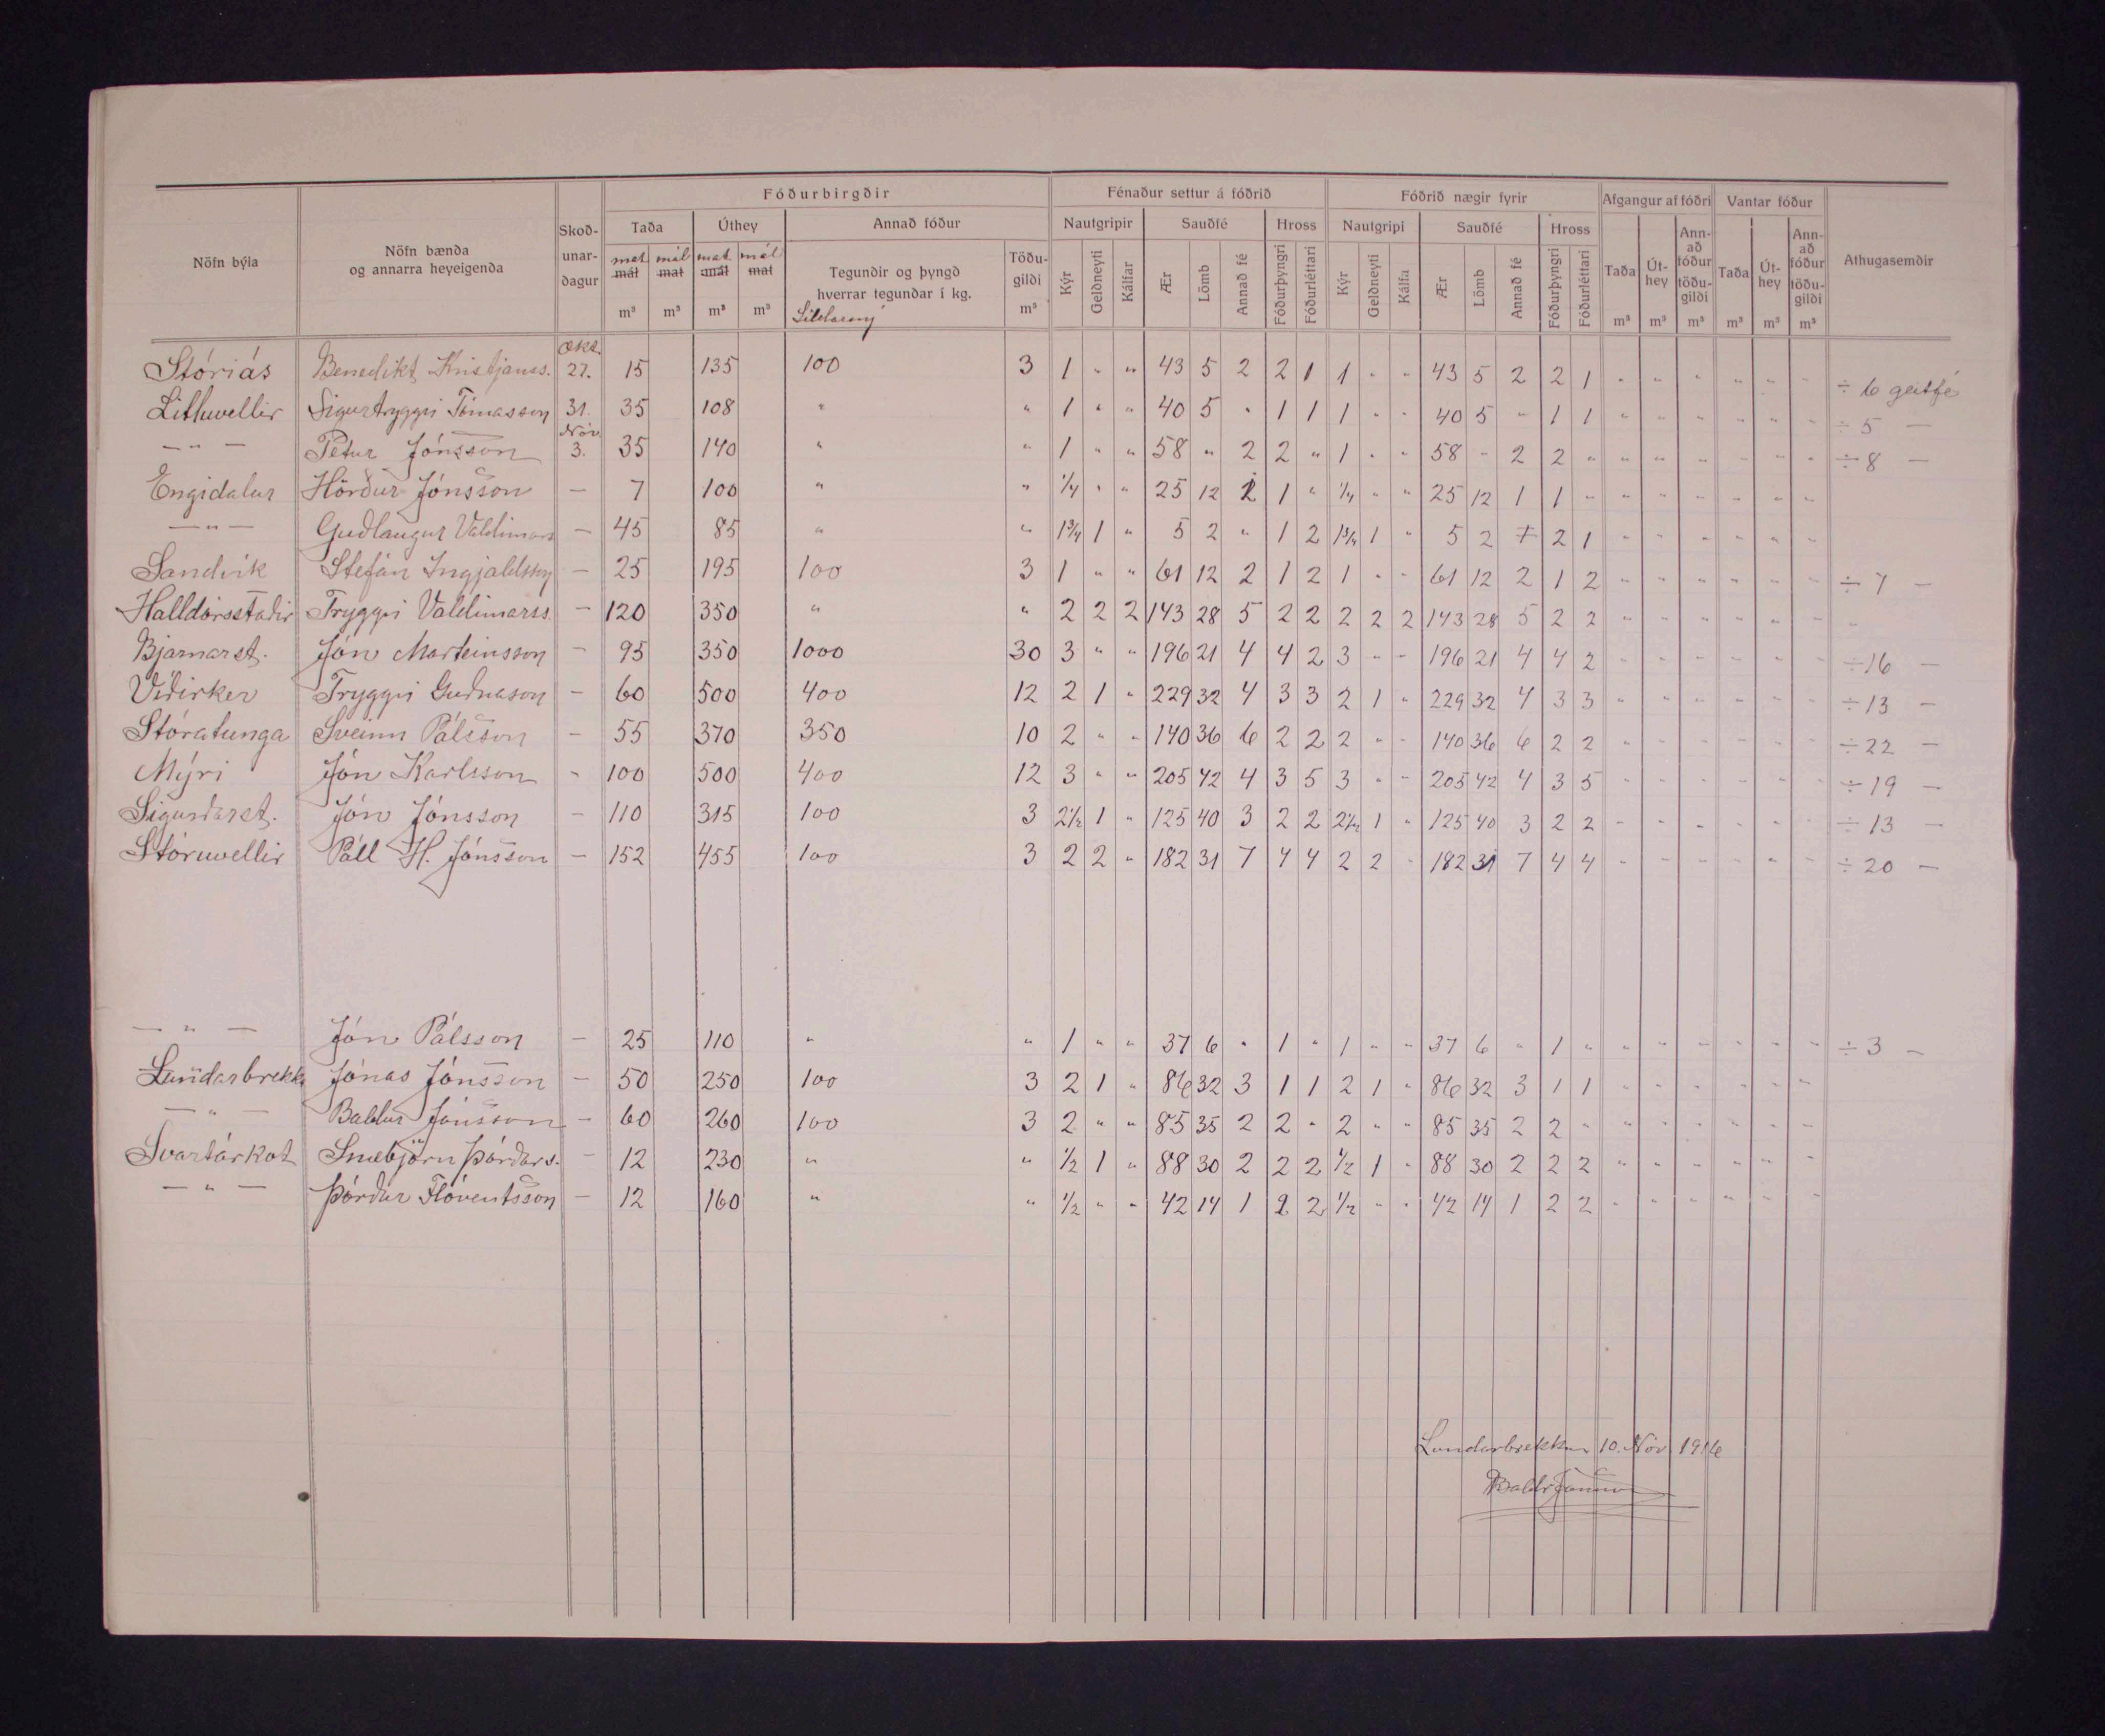 Fóðurbirgðir Fénaður settur á fóðrið Fóðrið nægir fyrir Afgangur af fóðri Vantar fóður
Nöfn býla Nöfn bænda og annarra heyeigenda Skoð-unar-dagur Taða Úthey Annað fóður Nautgripir Sauðfé Hross Nautgripi Sauðfé Hross Taða Út-hey Ann-að fóður töðu-gildi Taða Út-hey Ann-að fóður töðu-gildi Athugasemdir
mat. mál mat. mál
mál mat mál mat Tegundir og þyngd hverrar tegundar í kg. Töðu-gildi Kýr Geldneyti Kálfar Ær Lömb Annað fé Fóðurþyngri Fóðurléttari Kýr Geldneyti Kálfa Ær Lömb Annað fé Fóðurþyngri Fóðurléttari
m³ m³ m³ m³ m³ m³ m³ m³ m³ m³ m³
Okt.
Stóriás Benedikt Kristjánss. 27. 15 135 100 3 1 " " 43 5 2 2 1 1 " " 43 5 2 2 1 " " " " " " ÷ 6 geitfé
Litluvellir Sigurtryggvi Tómasson 31. 35 108 " " 1 " " 40 5 " 1 1 1 " " 40 5 " 1 1 " " " " " " ÷ 5 —
Nóv.
— " — Pétur Jónsson 3. 35 140 " " 1 " " 58 " 2 2 " 1 " " 58 " 2 2 " " " " " " " ÷ 8 —
Engidalur Hörður Jónsson — 7 100 " " 1/4 " " 25 12 1 1 " 1/4 " " 25 12 1 1 " " " " " " "
— " — Guðlaugur Valdimars — 45 85 " " 1 3/4 1 " 5 2 " 1 2 1 3/4 1 " 5 2 + 2 1 " " " " " "
Sandvík Stefán Ingjaldsson — 25 195 100 3 1 " " 61 12 2 1 2 1 " " 61 12 2 1 2 " " " " " " ÷ 7 —
Halldórsstaðir Tryggvi Valdimarss. — 120 350 " " 2 2 2 143 28 5 2 2 2 2 2 143 28 5 2 2 " " " " " " "
Bjarnarst. Jón Marteinsson — 95 350 1000 30 3 " " 196 21 4 4 2 3 " " 196 21 4 4 2 " " " " " " ÷ 16 —
Víðirker Tryggvi Guðnason — 60 500 400 12 2 1 " 229 32 4 3 3 2 1 " 229 32 4 3 3 " " " " " " ÷ 13 —
Stóratunga Sveinn Pálsson — 55 370 350 10 2 " " 140 36 6 2 2 2 " " 140 36 6 2 2 " " " " " " ÷ 22 —
Mýri Jón Karlsson — 100 500 400 12 3 " " 205 42 4 3 5 3 " " 205 42 4 3 5 " " " " " " ÷ 19 —
Sigurðarst. Jón Jónsson — 110 315 100 3 2 1/2 1 " 125 40 3 2 2 2 1/2 1 " 125 40 3 2 2 " " " " " " ÷ 13 —
Stóruvellir Páll H. Jónsson — 152 455 100 3 2 2 " 182 31 7 4 4 2 2 " 182 31 7 4 4 " " " " " " ÷ 20 —
— " — Jón Pálsson — 25 110 " " 1 " " 37 6 " 1 " 1 " " 37 6 " 1 " " " " " " " ÷ 3 —
Lundarbrekka Jónas Jónsson — 50 250 100 3 2 1 " 86 32 3 1 1 2 1 " 86 32 3 1 1 " " " " " "
— " — Baldur Jónsson — 60 260 100 3 2 " " 85 35 2 2 " 2 " " 85 35 2 2 " " " " " " "
Svartárkot Snæbjörn Þórðars. — 12 230 " " 1/2 1 " 88 30 2 2 2 1/2 1 " 88 30 2 2 2 " " " " " "
— " — Þórður Flóventsson — 12 160 " " 1/2 " " 42 14 1 2 2 1/2 " " 42 14 1 2 2 " " " " " "
Lundarbrekku 10. Nóv 1916
Baldr Jónsson